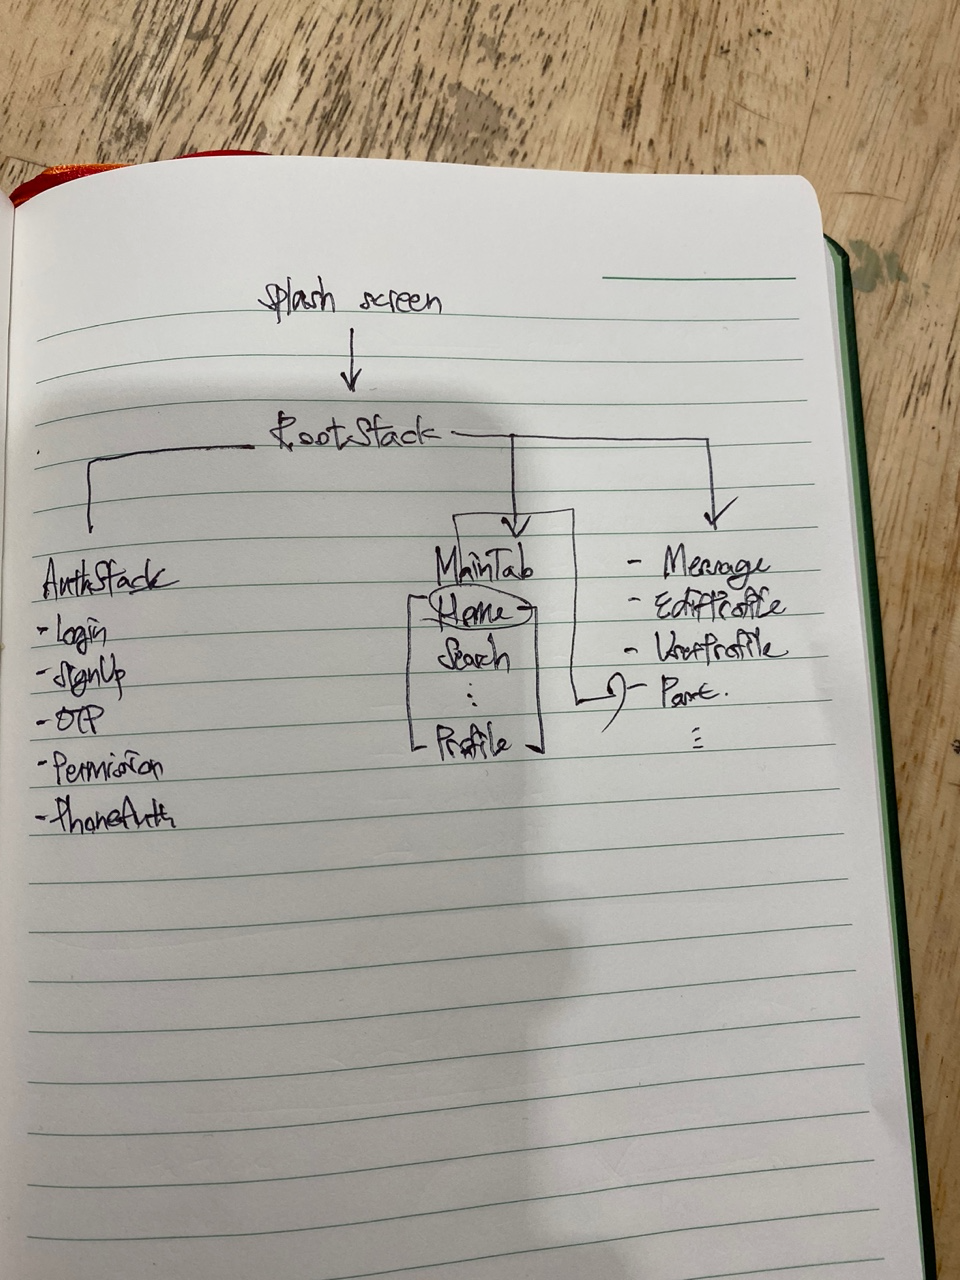 splash screen
RootStack
AuthStack
- Login
- SignUp
- OTP
- Permission
- PhoneAuth
MainTab
Home
Search
⋮
Profile
- Message
- EditProfile
- UserProfile
-
⋮